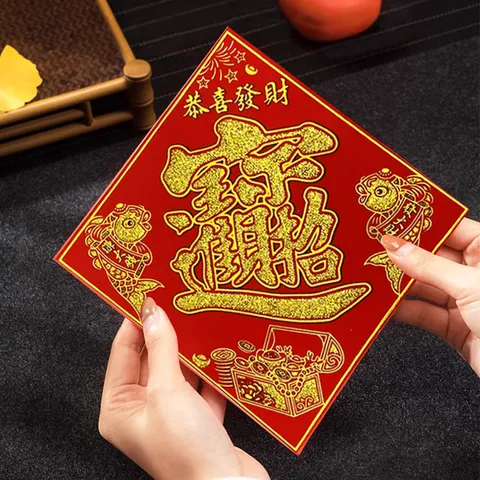 恭喜發財
招財進寶